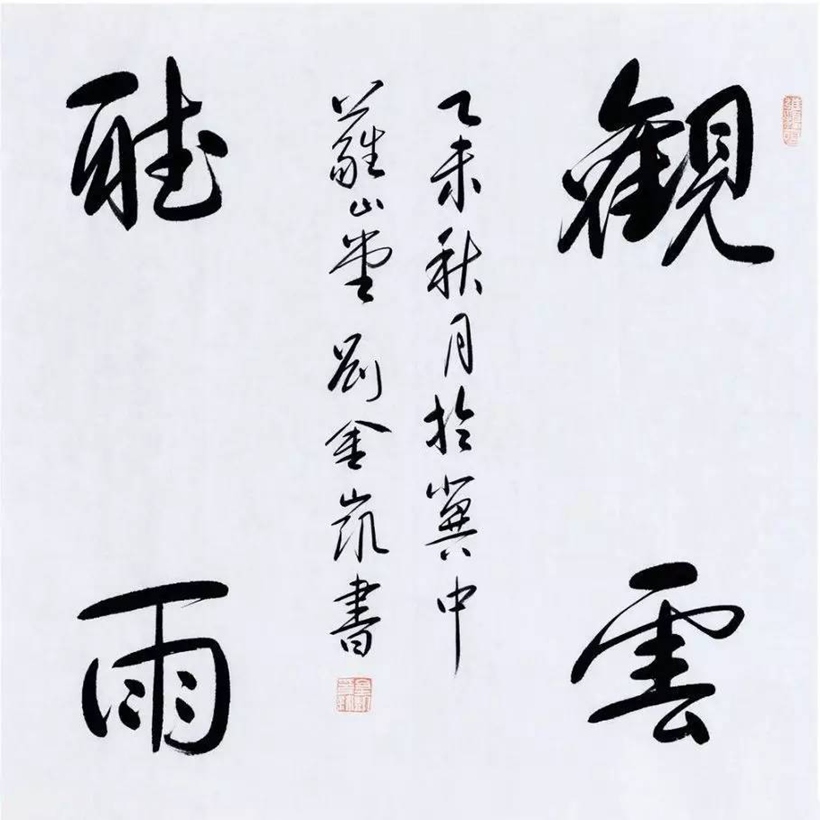 觀雲
乙未秋月於冀中
蘿山堂劉金凱書
聽雨